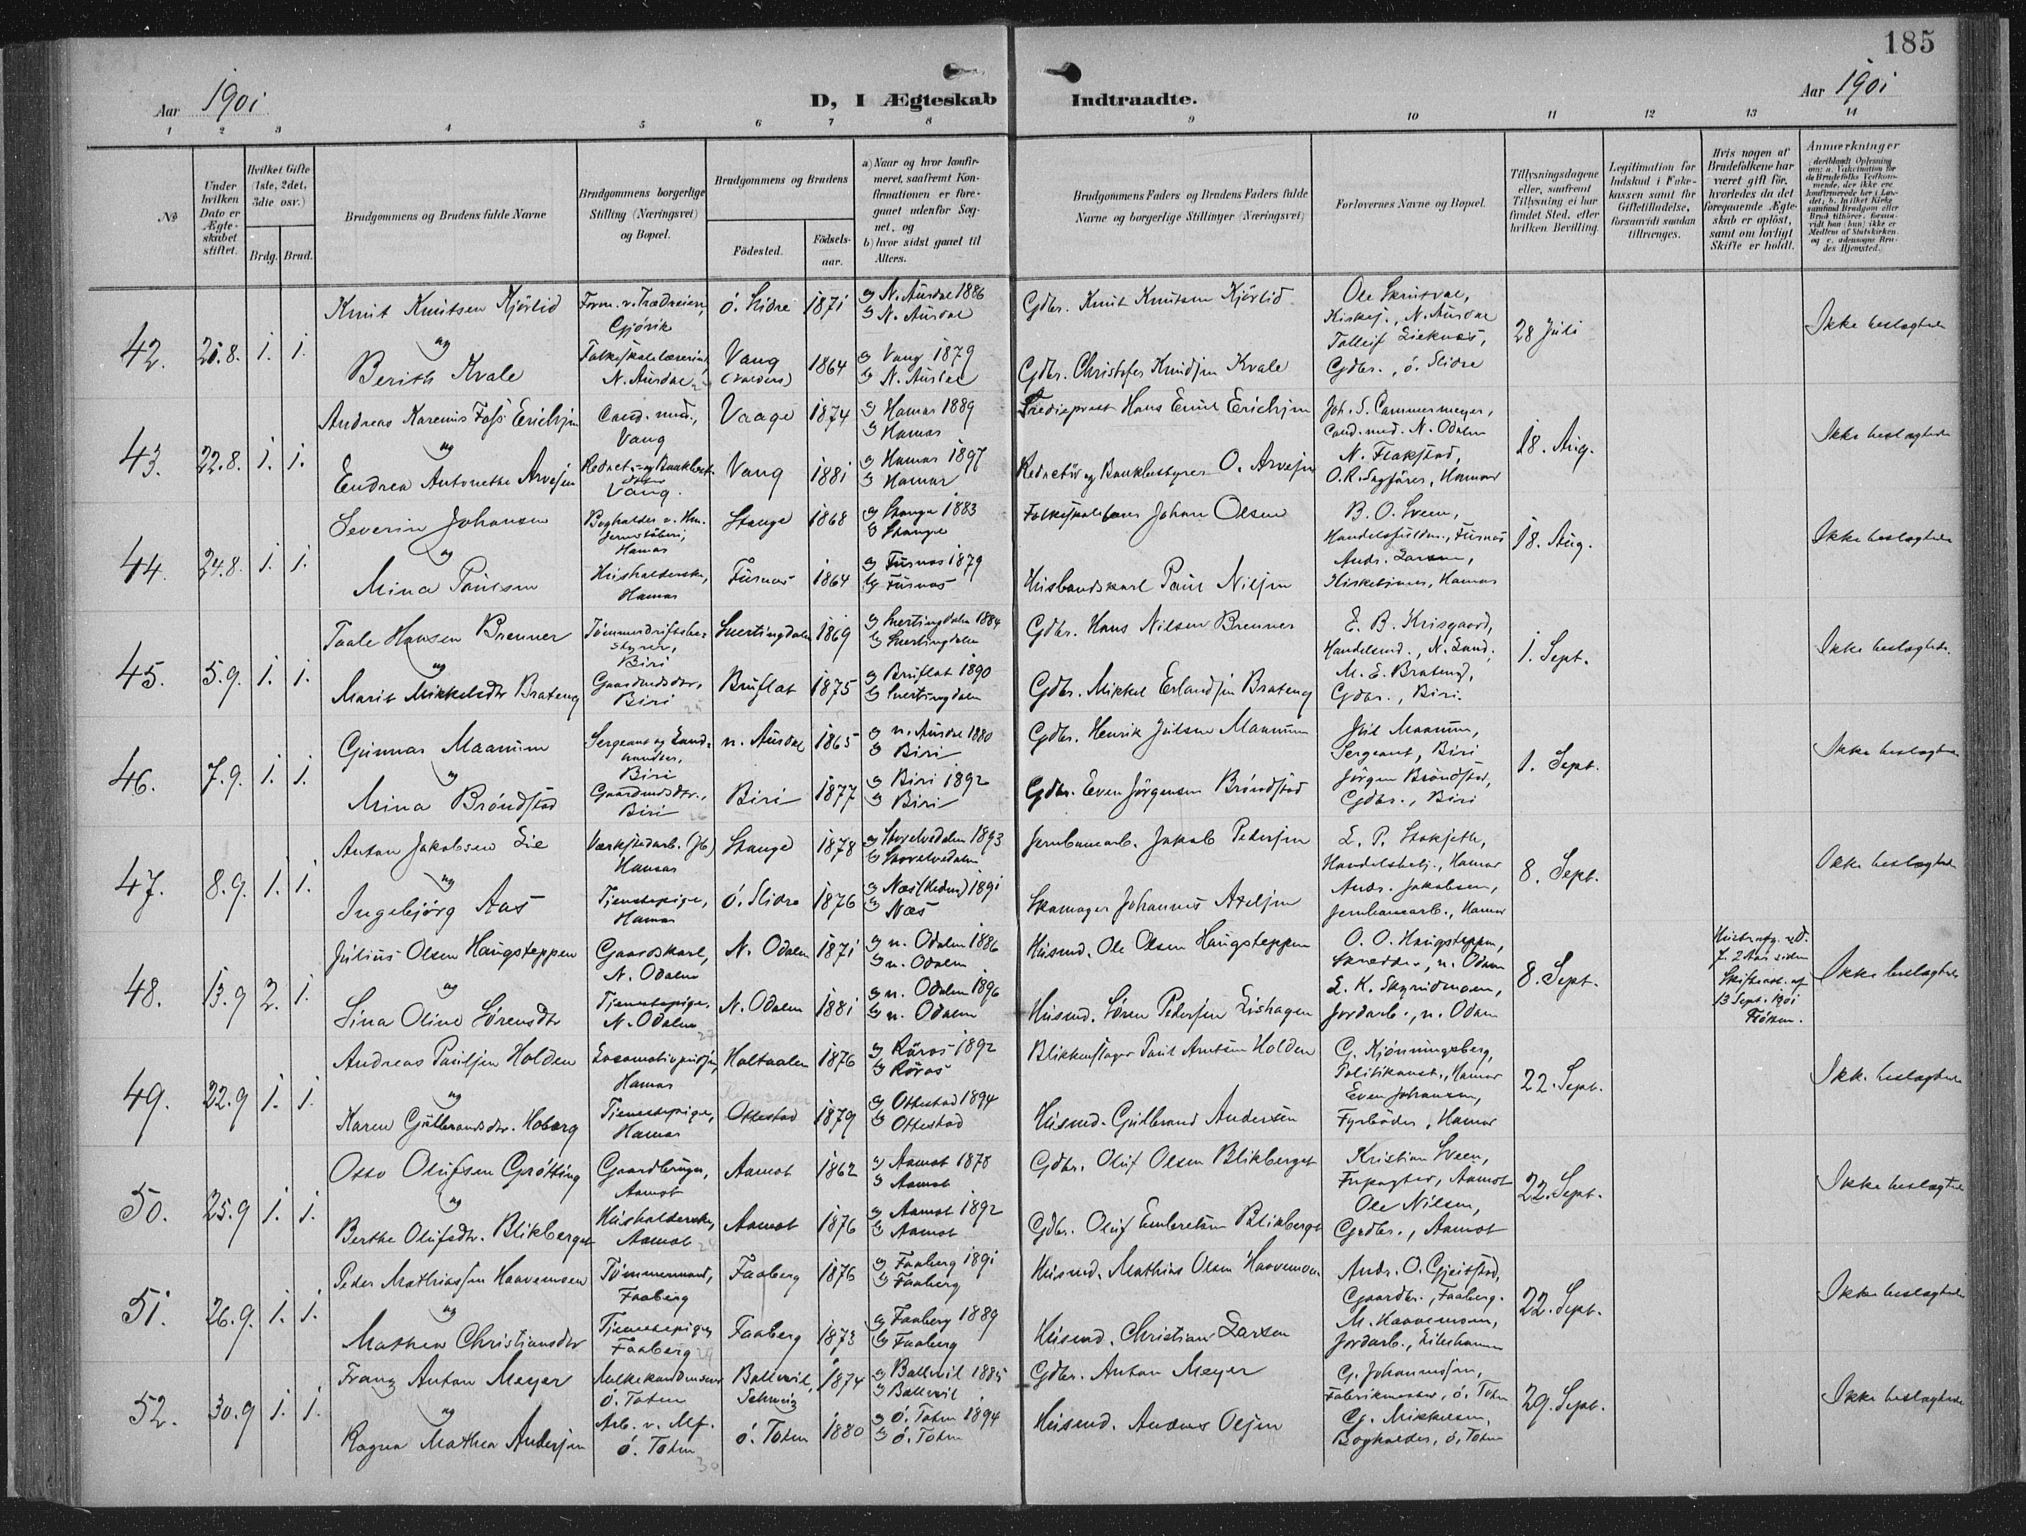 185
Aar 1901
D, I Ægteskab Indtraadte.
Aar 1901
1 2 3 4 5 6 7 8 9 10 11 12 13 14
No
Under hvilken Dato er Ægteskabet stiftet.
Hvilket Gifte (1ste, 2det, 3dte osv.)
Brdg. Brud.
Brudgommens og Brudens fulde Navne
Brudgommens borgerlige Stilling (Næringsvei) og Bopæl.
Brudgommens og Brudens
Fødested.
Fødselsaar.
a) Naar og hvor konfirmeret, saafremt Konfirmationen er foregaaet udenfor Sognet, og
b) hvor sidst gaaet til Alters.
Brudgommens Faders og Brudens Faders fulde Navne og borgerlige Stillinger (Næringsvei)
Forlovernes Navne og Bopæl.
Tillysningsdagene eller, saafremt Tillysning ei har fundet Sted, efter hvilken Bevilling.
Legitimation for Indskud i Enkekassen samt for Giftetilladelse, forsaavidt saadan tiltrænges.
Hvis nogen af Brudefolkene har været gift før, hvorledes da det foregaaende Ægteskab er opløst, samt om lovligt Skifte er holdt.
Anmærkninger
42. 21.8. 1. 1.
Knut Knutsen Kjørlid
og
Berith Kvale
Gjøvik
N. Aurdal
Ø. Slidre 1871
Vang (Valders) 1864
a) N. Aurdal 1886
b) N. Aurdal
a) Vang 1879
b) N. Aurdal
Gdbr. Knut Knutsen Kjørlid
Gdbr. Christofer Knudsen Kvale
Ole Skrutvol,
Kirkesj., N. Aurdal
Gdbr., Ø. Slidre
28 Juli
Ikke beslægtede
43. 22.8. 1. 1.
Andreas Karenus Foss Erichsen
og
Endrea Antonette Arvesen
Cand. med.,
Vang
Vang.
Vaage 1874
Vang 1881
a) Hamar 1889
b) Hamar
a) Hamar 1897
b) Hamar
Hans Emil Erichsen
Redaktør og Bankbestyrer O. Arvesen
Joh. S. Cammermeyer,
Cand. med. N. Odalen
N. Flakstad,
O.R. Sagfører, Hamar
18. Aug.
Ikke beslægtede
44. 24.8. 1. 1.
Severin Johansen
og
Mina Paulsen
Bogholder v. Hm. Jernstøberi,
Hamar
Husholderske,
Hamar
Stange 1868
Furnæs 1864
a) Stange 1883
b) Stange
a) Furnæs 1879
b) Furnæs
Folkeskolelærer Johan Olsen
Husbondskarl Paul Nilsen
B. O. Sveen,
Handelsfuldm., Furnæs
Andr. Larsen,
Hamar
18. Aug.
Ikke beslægtede
45. 5.9. 1. 1.
Paale Hansen Brenner
og
Marit Mikkelsdtr Brateng
Tømmerdriftsbestyrer,
Biri
Gaardmdsdtr.,
Biri
Snertingdalen 1869
Bruflat 1875
a) Snertingdalen 1884
b) Snertingdalen
a) Bruflat 1890
b) Snertingdalen
Gdbr. Hans Nilsen Brenner
Gdbr. Mikkel Erlandsen Brateng
E. B. Krisgaard,
Handelsmd., N. Land,
M. E. Brateng,
Gdbr., Biri.
1. Sept.
Ikke beslægtede.
46. 7.9. 1. 1.
Gunnar Maanum
og
Mina Brøndstad
Sergeant og Landhandler,
Biri
Gaardmdsdtr.,
Biri
N. Aurdal 1865
Biri 1877
a) N. Aurdal 1880
b) Biri
a) Biri 1892
b) Biri
Gdbr. Henrik Julsen Maanum
Gdbr. Even Jørgensen Brøndstad
Jul Maanum,
Sergeant, Biri
Jørgen Brøndstad,
Gdbr., Biri
1. Sept.
Ikke beslægtede
47. 8.9. 1. 1.
Anton Jakobsen Lie
og
Ingebjørg Aas
Værkstedarb. (Jb)
Hamar
Tjenestepige,
Hamar
Stange 1878
Ø. Slidre 1876
a) Storelvedalen 1893
b) Storelvedalen
a) Næs (Hedm) 1891
b) Næs
Jernbanearb. Jakob Pedersen
Skomager Johannes Axelsen
L. P. Stokseth,
Handelsbetj., Hamar
Andr. Jakobsen,
Jernbanearb., Hamar
8. Sept.
Ikke beslægtede
48. 13.9 2. 1.
Julius Olsen Haugsteppen
og
Sina Oline Sørensdtr
Gaardskarl,
N. Odalen
Tjenestepige,
N. Odalen
27
N. Odalen 1871
N. Odalen 1881
a) N. Odalen 1886
b) N. Odalen
a) N. Odalen 1896
b) N. Odalen
Husmd. Ole Olsen Haugsteppen
Husmd. Søren Pedersen Lishagen
O. O. Haugsteppen,
Skrædder, N. Odalen
L. K. Skyrudmoen,
Jordarb., N. Odalen
8. Sept.
Skifteatt. af
13 Sept. 1901
Ikke beslægtede
49. 22.9 1. 1.
Andreas Paulsen Holden
og
Karen Gulbrandsdtr. Hoberg
Locomotivpudser,
Hamar
Tjenestepige,
Hamar
Holtaalen 1876
Ottestad 1879
a) Røros 1892
b) Røros
a) Ottestad 1894
b) Ottestad
Blikkenslager Paul Arntsen Holden
Husmd. Gulbrand Andersen
G. Kjønningsberg,
Politikonst., Hamar
Even Johansen,
Fyrbøder, Hamar
22. Sept.
Ikke beslægtede
50. 25.9 1. 1.
Otto Olufsen Grøtting
og
Berthe Olufsdtr. Blikberget
Gaardbruger,
Aamot
Husholderske,
Aamot
Aamot 1862
Aamot 1876
a) Aamot 1878
b) Aamot
a) Aamot 1892
b) Aamot
Gdbr. Oluf Olsen Blikberget
Gdbr. Oluf Embretsen Blikberget
Kristian Sveen,
Forpagter, Aamot
Ole Nilsen,
Gdbr., Aamot
22. Sept.
Ikke beslægtede
51. 26.9. 1. 1.
Peder Mathiassen Haavemoen
og
Mathea Christiansdtr
Tømmermand,
Faaberg
Tjenestepige,
Faaberg
29
Faaberg 1876
Faaberg 1873
a) Faaberg 1891
b) Faaberg
a) Faaberg 1889
b) Faaberg
Husmd. Mathias Olsen Haavemoen
Husmd. Christian Larsen
Andr. O. Gjeitstad,
Gaardbr., Faaberg.
M. Haavemoen,
Jordarb., Lillehammer
22. Sept.
Ikke beslægtede
52. 30.9 1. 1.
Franz Anton Meyer
og
Ragna Mathea Andersen
Ø. Toten
Arb. v. Mf.
Ø. Toten
30
Ballwil, Schweiz 1874
Ø. Toten 1880
a) Ballwil 1885
b) Ballwil
a) Ø. Toten 1894
b) Ø. Toten
Gdbr. Anton Meyer
Husmd. Anders Olsen
G. Johannesen,
Fabrikmester, Ø. Toten
G. Mikkelsen,
Bogholder, Ø. Toten
29. Sept.
Ikke beslægtede